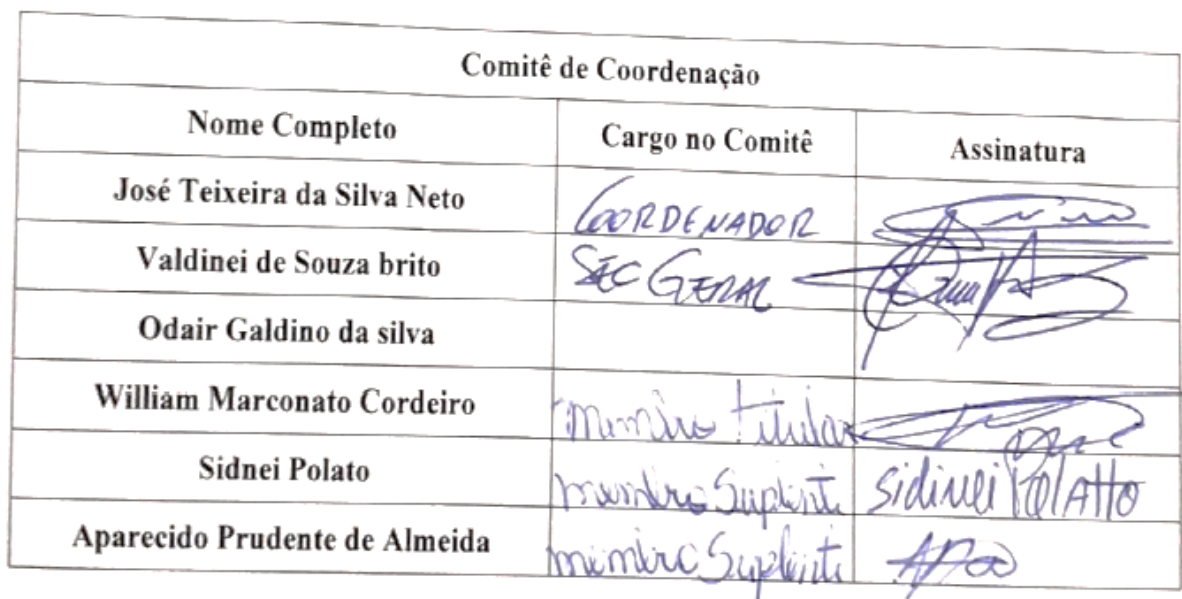 Comitê de Coordenação
Nome Completo Cargo no Comitê Assinatura
José Teixeira da Silva Neto COORDENADOR
Valdinei de Souza brito SEC GERAL
Odair Galdino da silva
William Marconato Cordeiro membro titular
Sidnei Polato membro Suplente Sidinei Polatto
Aparecido Prudente de Almeida membro Suplente